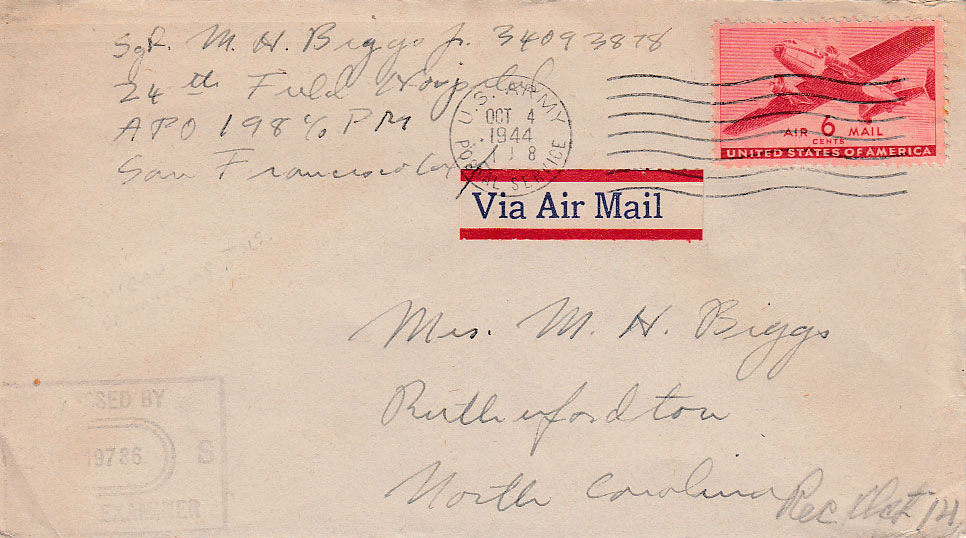 Sgt. M. H. Biggs Jr. 34093878
24th Field Hospital
APO 198 c/o PM
San Francisco Cal
U.S. ARMY
OCT 4
1944
POSTAL SERVICE
AIR 6 MAIL
CENTS
UNITED STATES OF AMERICA
Via Air Mail
Mrs. M. H. Biggs
Rutherfordton
North Carolina
Rec Oct 14
SED BY
19786
S
EXAMINER